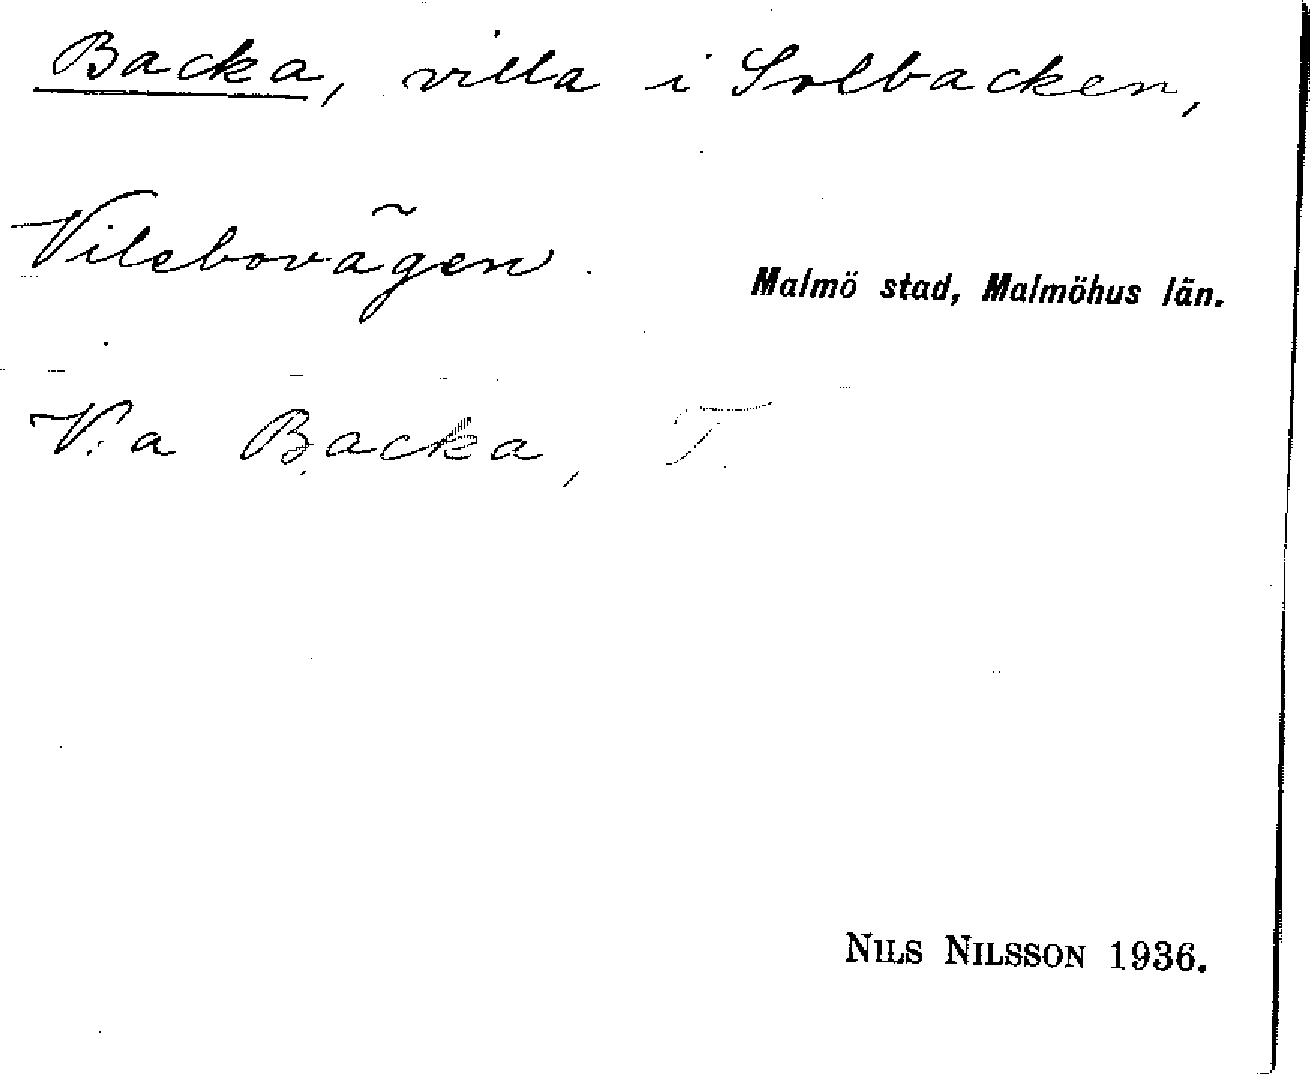 Backa, villa i Solbacken,
Vilebovägen.
Malmö stad, Malmöhus län.
V:a Backa, T.
NILS NILSSON 1936.